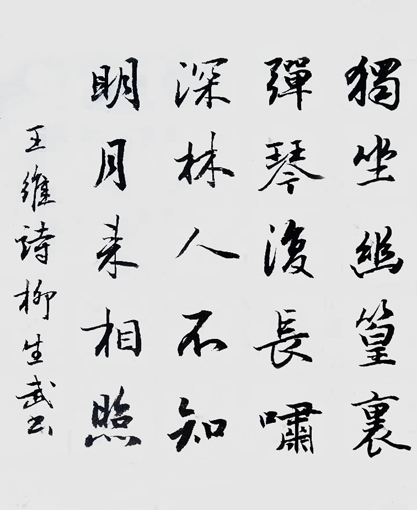 獨坐幽篁裏
彈琴復長嘯
深林人不知
明月来相照
王維詩柳生武书